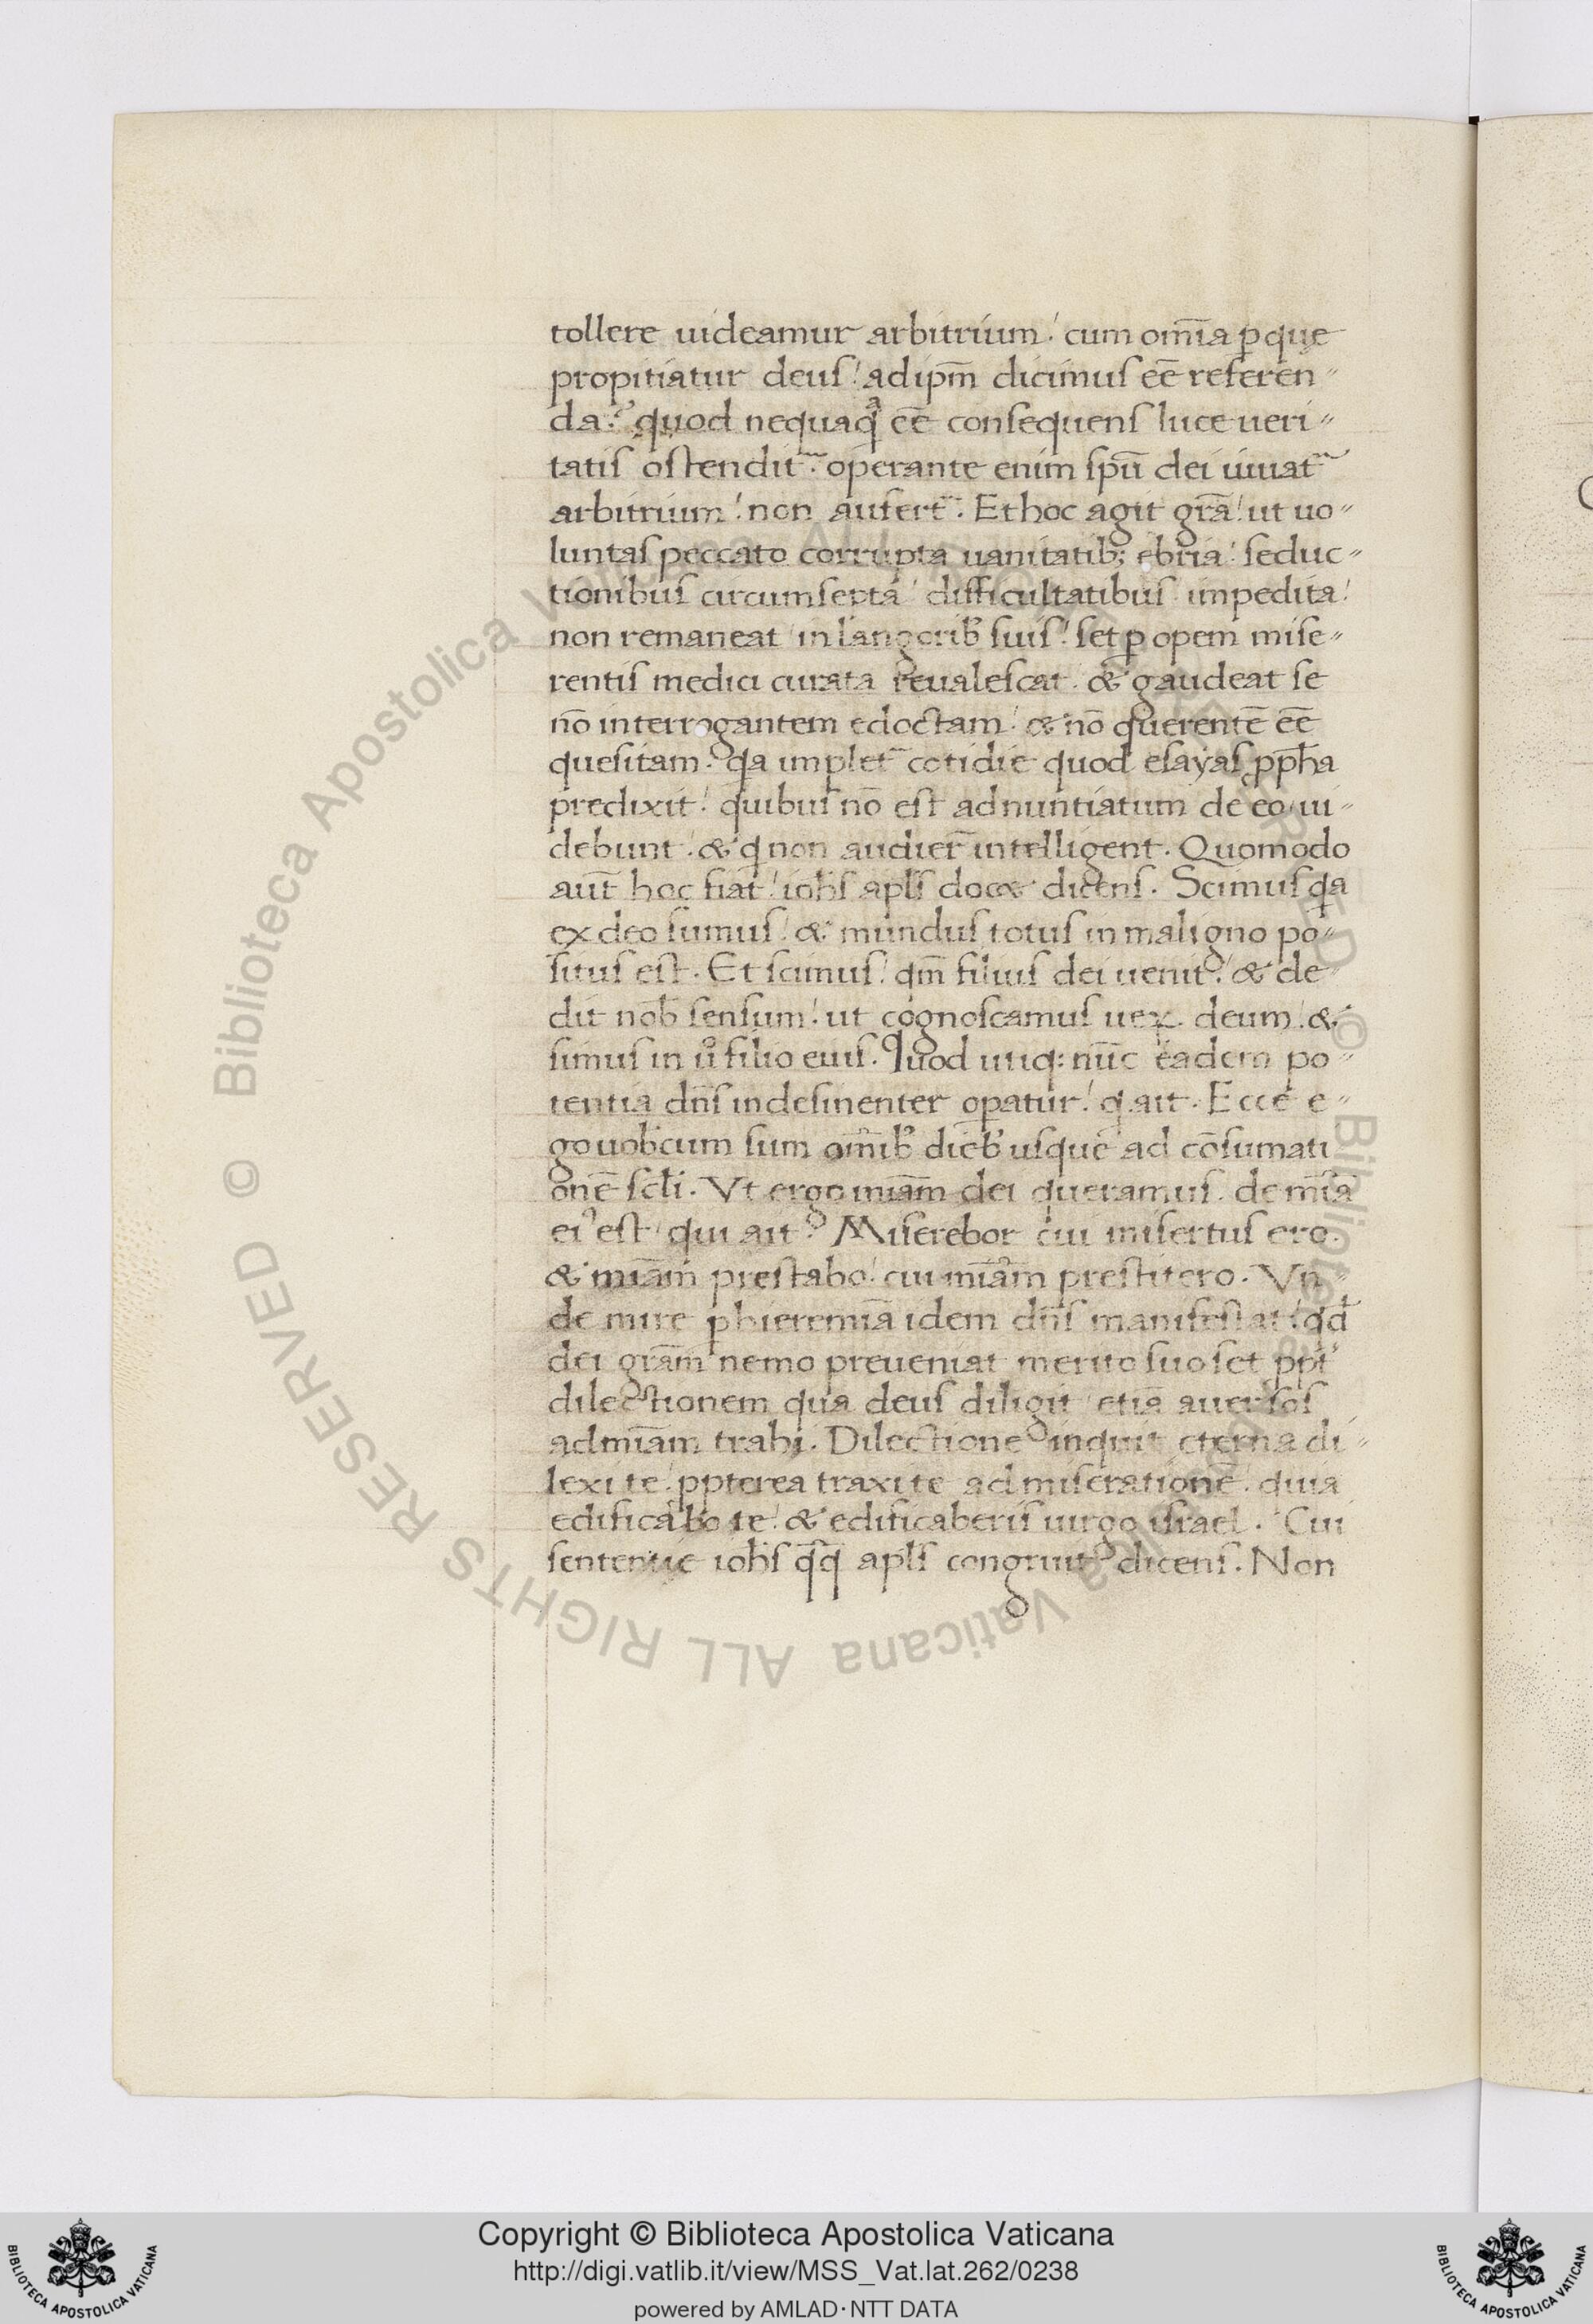 tollere uideamur arbitrium! cum om̅ia ꝑ que
propitiatur deus! ad ip̅m dicimus ee̅ referen〃
da? quod nequaqᷓ ee̅ consequens luce ueri〃
tatis ostendit᷑. operante enim sp̅u dei iuuat᷑
arbitrium! non aufert᷑. Et hoc agit gr̅a! ut uo〃
luntas peccato corrupta uanitatib; ebria! seduc〃
tionibus circumsepta! difficultatibus impedita!
non remaneat in langorib᷒ suis! set ꝑ opem mise〃
rentis medici curata reualescat. & gaudeat se
no̅ interrogantem edoctam! & no̅ querente̅ ee̅
quesitam. qa implet᷑ cotidie quod esayas ꝓph̅a
predixit! quibus no̅ est adnuntiatum de eo ui〃
debunt. & q non audier̅ intelligent. Quomodo
aut̅ hoc fiat! ioh̅s apl̅s doc& dicens. Scimus qa
ex deo sumus! & mundus totus in maligno po〃
situs est. Et scimus! qm̅ filius dei uenit! & de〃
dit nob̅ sensum! ut cognoscamus ueꝝ deum. &
simus in u͛o filio eius. Quod utiq: nu̅c eadem po〃
tentia dn̅s indesinenter oꝑatur! q ait. Ecce e〃
go uob̅cum sum om̅ib᷒ dieb᷒ usque ad co̅sumati
one̅ sc̅li. Vt ergo mi̅am dei queramus. de mi̅a
ei᷒ est qui ait? Miserebor cui misertus ero.
& mi̅am prestabo! cui mi̅am prestitero. Vn〃
de mire ꝑ hieremia̅ idem dn̅s manifestat! qd̅
dei gr̅am nemo preueniat merito suo set ꝓpt͛
dilectionem qua deus diligit etia̅ auersos
ad mi̅am trahi. Dilectione inquit eterna di〃
lexi te! ꝓpterea traxi te ad miseratione̅. quia
edificabo te! & edificaberis uirgo israel. Cui
sententie ioh̅s qq̅ apl̅s congruit? dicens. Non
Copyright © Biblioteca Apostolica Vaticana
http://digi.vatlib.it/view/MSS_Vat.lat.262/0238
powered by AMLAD·NTT DATA
BIBLIOTECA APOSTOLICA VATICANA
BIBLIOTECA APOSTOLICA VATICANA
© Biblioteca Apostolica Vaticana ALL RIGHTS RESERVED © Biblioteca Apostolica Vaticana ALL RIGHTS RESERVED